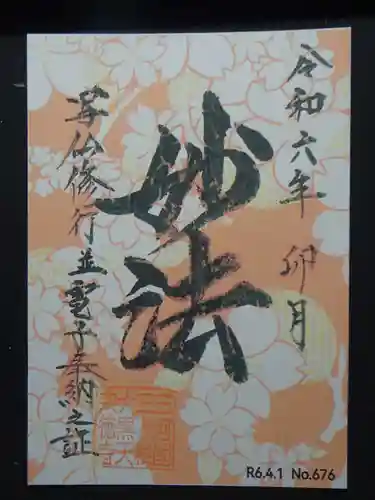 令和六年 卯月
妙法
写仏修行並電子奉納之証
R6.4.1 No.676